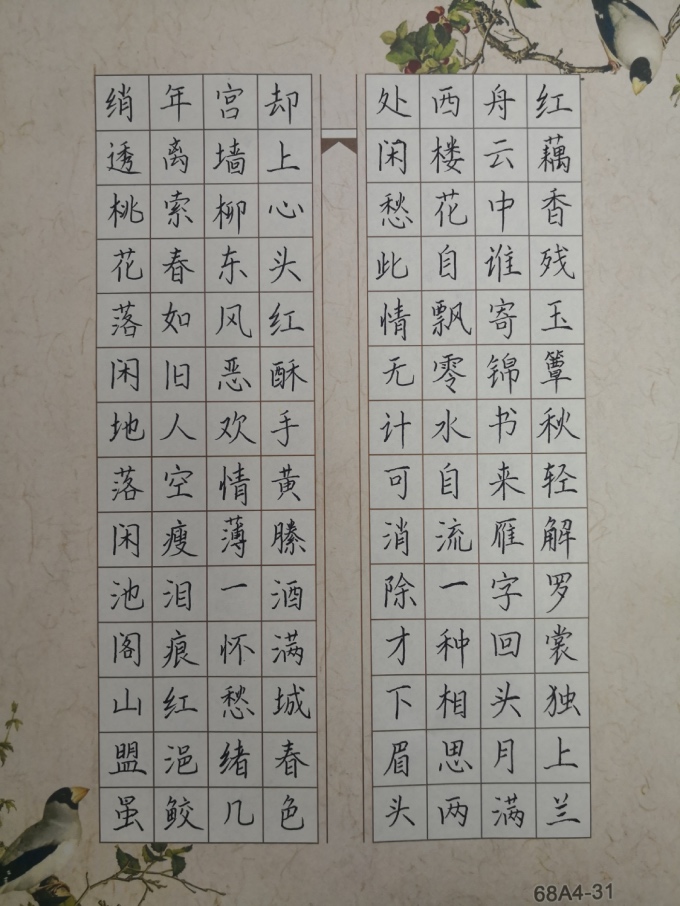 红藕香残玉簟秋轻解罗裳独上兰
舟云中谁寄锦书来雁字回头月满
西楼花自飘零水自流一种相思两
处闲愁此情无计可消除才下眉头
却上心头红酥手黄滕酒满城春色
宫墙柳东风恶欢情薄一怀愁绪几
年离索春如旧人空瘦泪痕红浥鲛
绡透桃花落闲地落闲池阁山盟虽
68A4-31